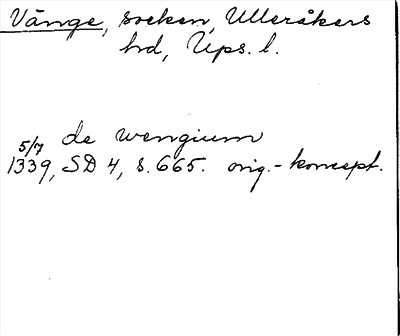 Vänge, socken, Ulleråkers
hd, Ups. l.
de wengium
5/7 1339, SD 4, s. 665. orig.-koncept.